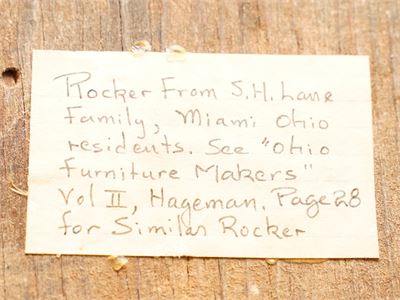 Rocker From S.H. Lane
Family, Miami Ohio
residents. See "Ohio
Furniture Makers"
Vol II, Hageman. Page 28
for Similar Rocker